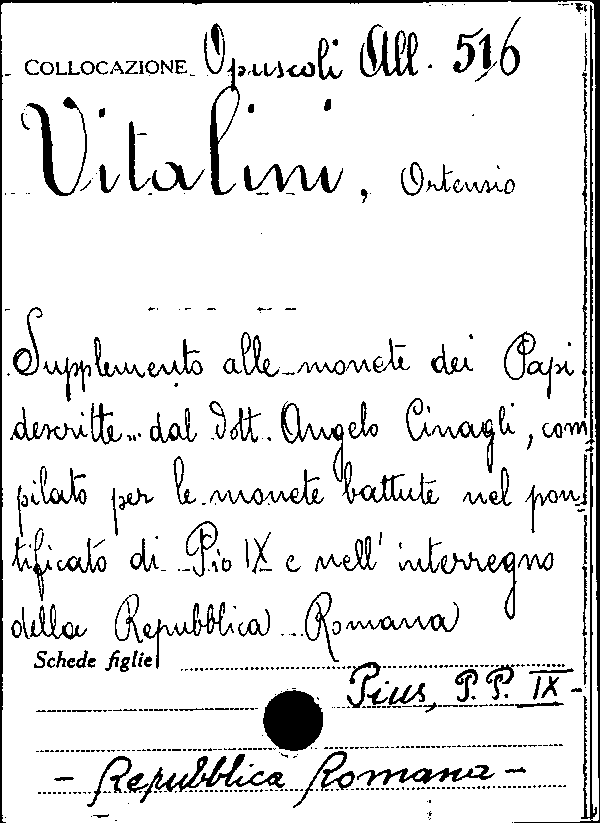 COLLOCAZIONE Opuscoli All. 516
Vitalini, Ortensio
Supplemento alle monete dei Papi
descritte dal Dott. Angelo Cinagli, com
pilato per le monete battute nel pon
tificato di Pio IX e nell' interregno
della Repubblica Romana
Schede figlie
Pius, P.P. IX -
- Repubblica Romana -